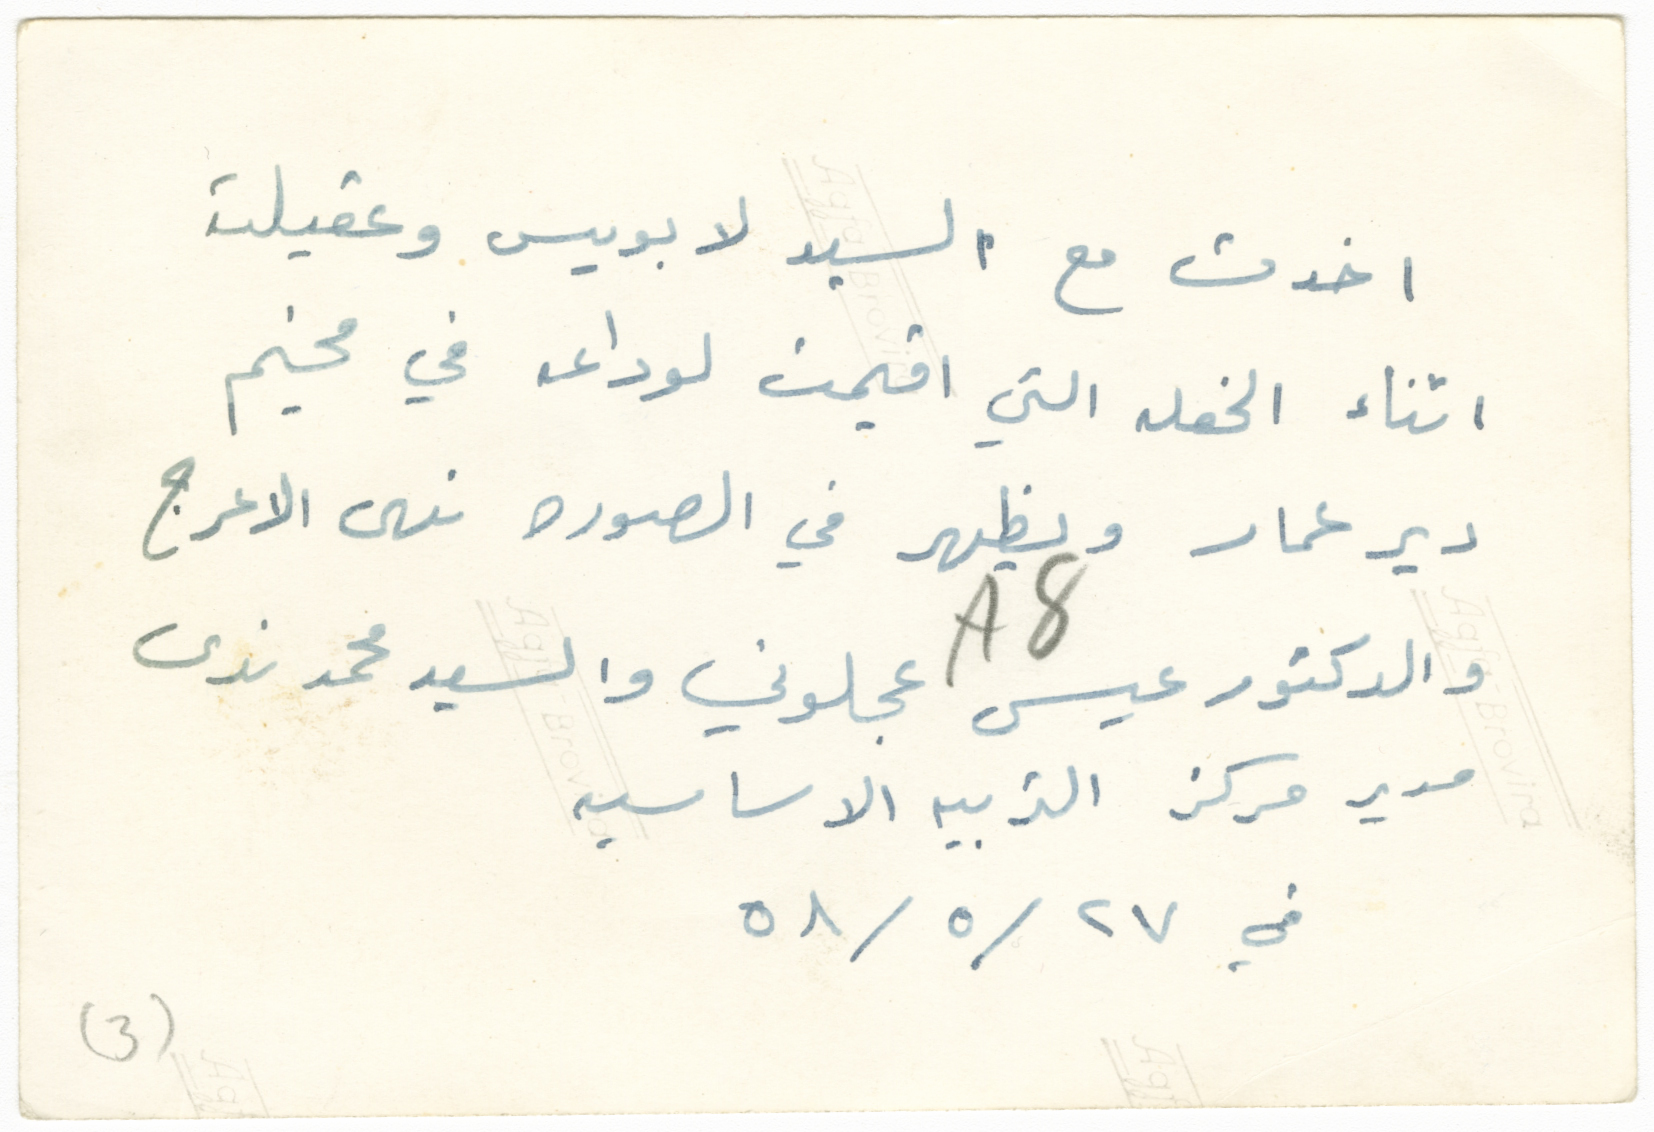 اخذت مع السيد لابويس وعقيلته
اثناء الحفله التي اقيمت لوداعه في مخيم
دير عمار ويظهر في الصوره نهى الاعرج
A8
والدكتور عيسى عجلوني والسيد محمد ندى
مدير مركز التربيه الاساسيه
في ٢٧/ ٥/ ٥٨
(3)
Agfa-Brovira
Agfa-Brovira
Agfa-Brovira